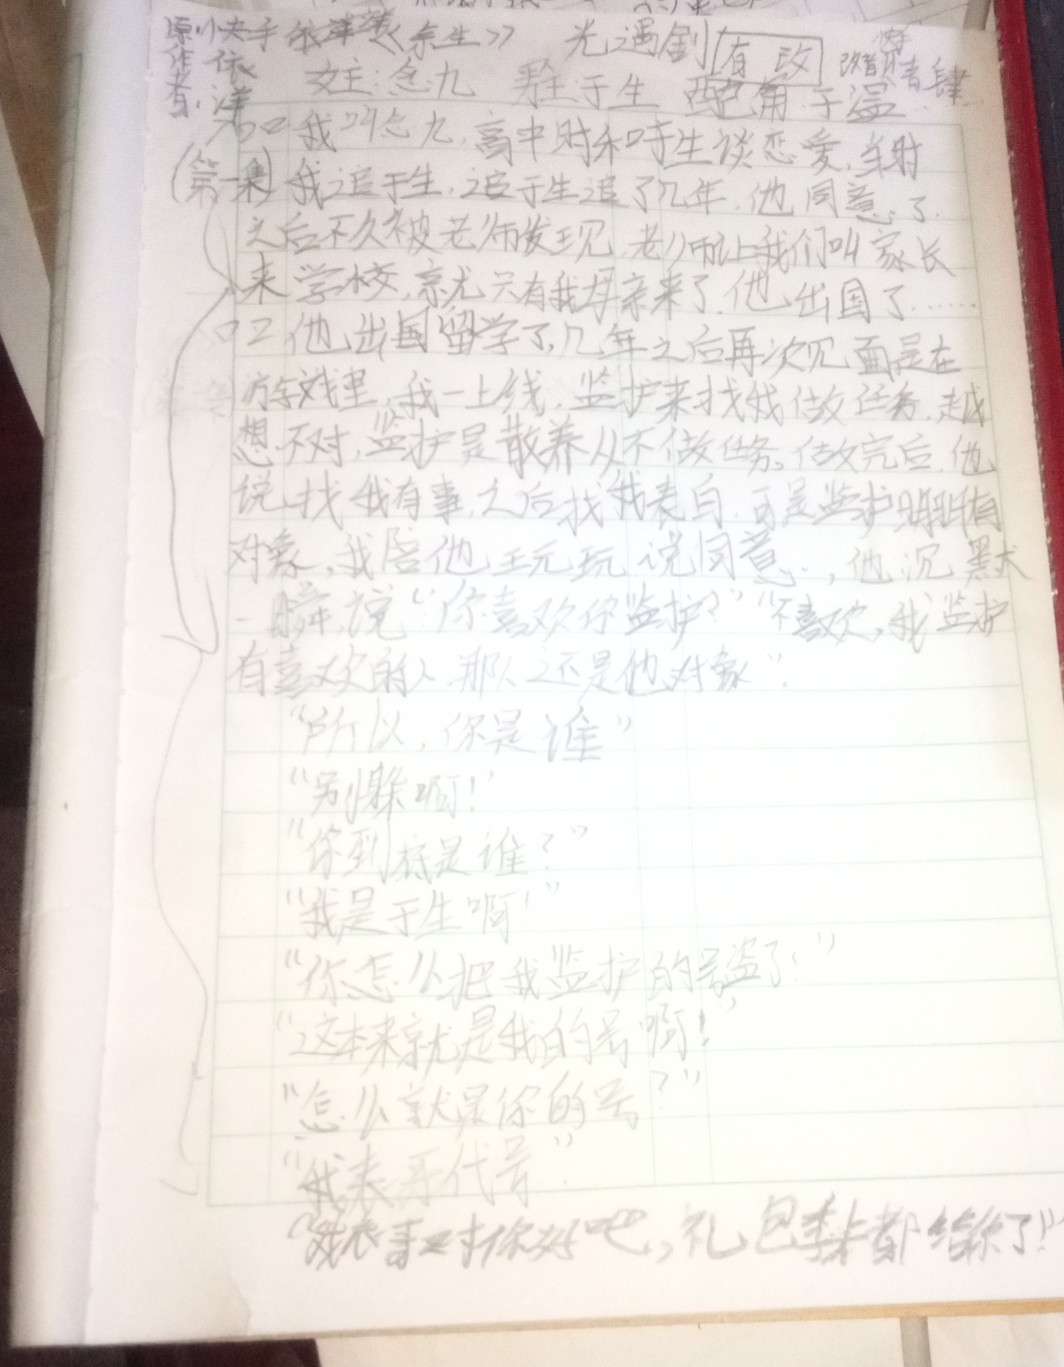 原作者 快手 依洋《余生》 光遇剧 有改
女主：念九 男主：于生 配角：于温
我叫念九，高中时和时生谈恋爱，当时
（第一集）我追于生，追于生追了几年，他同意了
之后不久被老师发现，老师让我们叫家长
来学校，就只有我母亲来了，他出国了……
他出国留学了，几年之后再次见面是在
游戏里，我一上线，监护来找我做任务，越
想不对，监护是散养从不做任务。做完后，他
说找我有事，之后找我表白，可是监护明明有
对象，我陪他玩玩说同意，他沉默
一瞬，说“你喜欢你监护？”“不喜欢，我监护
有喜欢的人，那人还是他对象”
“所以，你是谁”
“别躲啊！”
“你到底是谁？”
“我是于生啊！”
“你怎么把我监护的号盗了！”
“这本来就是我的号啊！”
“怎么就是你的号？”
“我表哥代号”
“我表哥对你好吧，礼包季卡都给你了！”